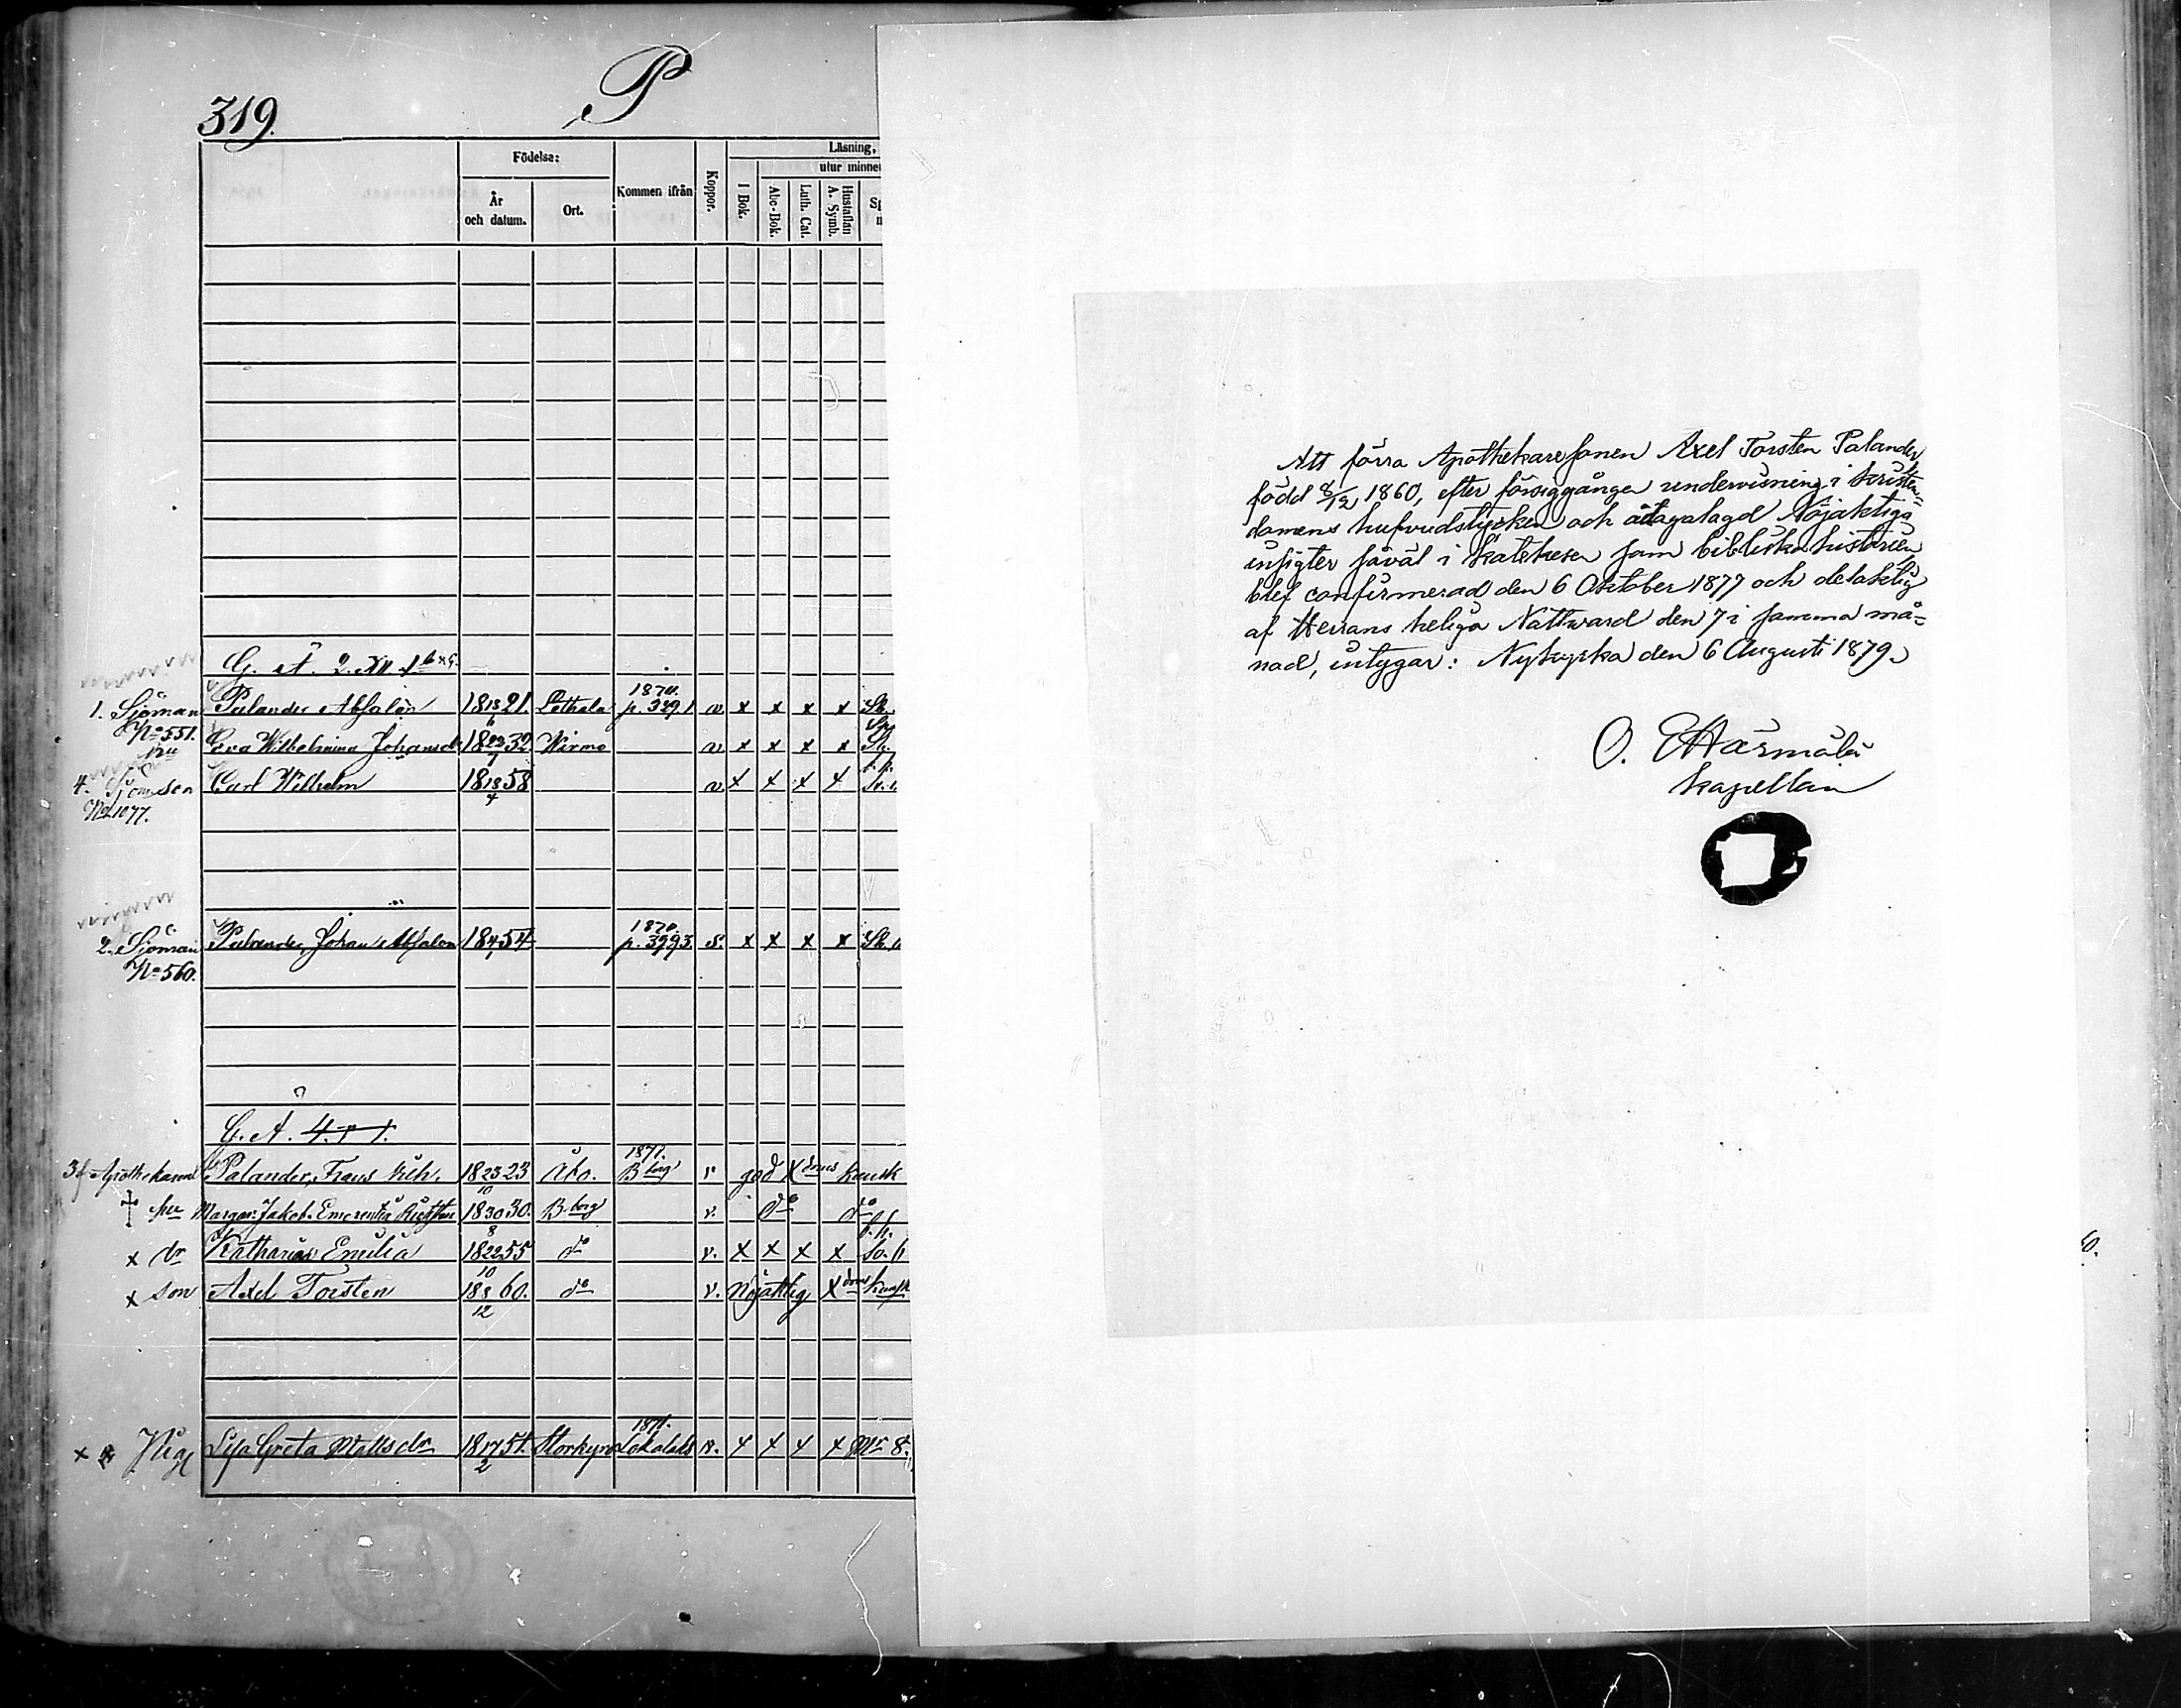 P
319.
Födelse:
Läsning,
utur minne
År
och datum.
Ort.
Kommen ifrån
Koppor.
I Bok.
Abc-Bok.
Luth. Cat.
Hustaflan
A. Symb.
G. A. 2.
1. Sjöman Palander Absalon 18 18/6 21. Letala 1870. p. 329.1 v x x x x
No 551.
hu Eva Wilhelmina Johansdr 18 22/7 32 Wirmo v x x x x
4. Sjöm. son Carl Wilhelm 18 18/4 58 v x x x x
No 1077.
2. Sjöman Palander, Johan Absalon 18 54 1870. p. 399 3. s. x x x x
No 560.
G. A. 4.
3 f Apothekaren Palander, Frans Wilh. 18 23/10 23 Åbo. 1871. B.borg v god Xdoms kunsk
hu Margar. Jakob. Emerentia 18 30/8 30. B.borg v. do do
x dr Katharina Emilia 18 22/10 55 do v. x x x x
x son Axel Torsten 18 8/12 60. do v. Nöjaktig Xdoms kunsk
x Pig Lisa Greta Mattsdr 18 17/2 51. Storkyro 1871. Lokalaks v. x x x x
Att förra Apothekaresonen Axel Torsten Palander
född 8/12 1860, efter försiggången undervisning i kristen-
domens hufvudstycken och ådagalagd Nöjaktiga
insigter såväl i katekesen som bibliska historien
blef confirmerad den 6 Oktober 1877 och delaktig
af Herrans heliga Nattward den 7 i samma må-
nad, intygar: Nykyrka den 6 Augusti 1879.
O.
kapellan